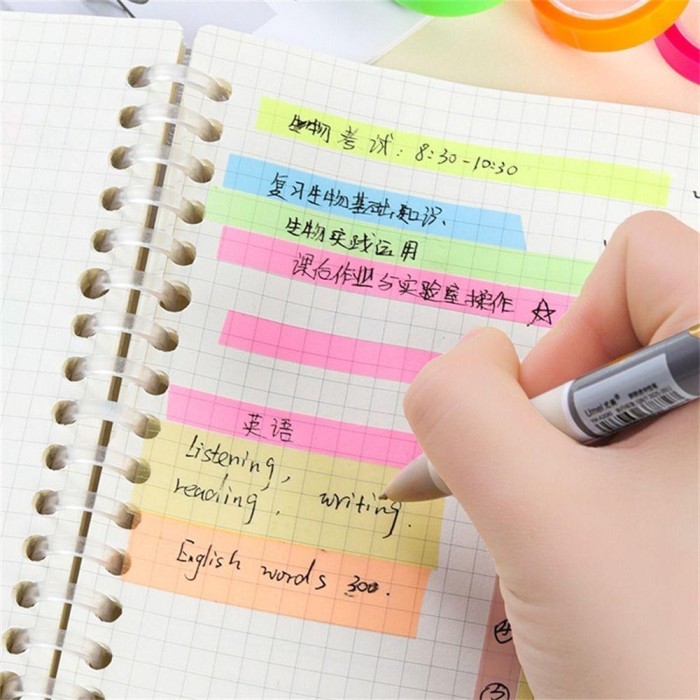 生物考试：8:30-10:30
复习生物基础知识、
生物实践运用
课后作业与实验室操作 ☆
英语
Listening,
reading, writing.
English words 300.
④
⑤